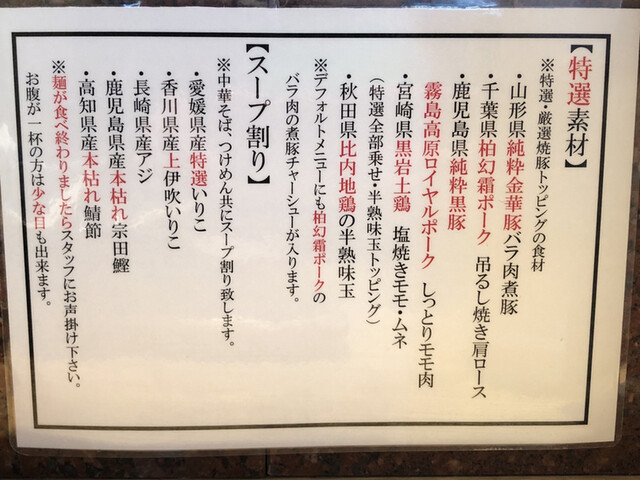 【特選素材】
※特選・厳選焼豚トッピングの食材
・山形県純粋金華豚バラ肉煮豚
・千葉県柏幻霜ポーク 吊るし焼き肩ロース
・鹿児島県純粋黒豚
霧島高原ロイヤルポーク しっとりモモ肉
・宮崎県黒岩土鶏 塩焼きモモ・ムネ
(特選全部乗せ・半熟味玉トッピング)
・秋田県比内地鶏の半熟味玉
※デフォルトメニューにも柏幻霜ポークの
バラ肉の煮豚チャーシューが入ります。
【スープ割り】
※中華そば、つけめん共にスープ割り致します。
・愛媛県産特選いりこ
・香川県産上伊吹いりこ
・長崎県産アジ
・鹿児島県産本枯れ宗田鰹
・高知県産本枯れ鯖節
※麺が食べ終わりましたらスタッフにお声掛け下さい。
お腹が一杯の方は少な目も出来ます。